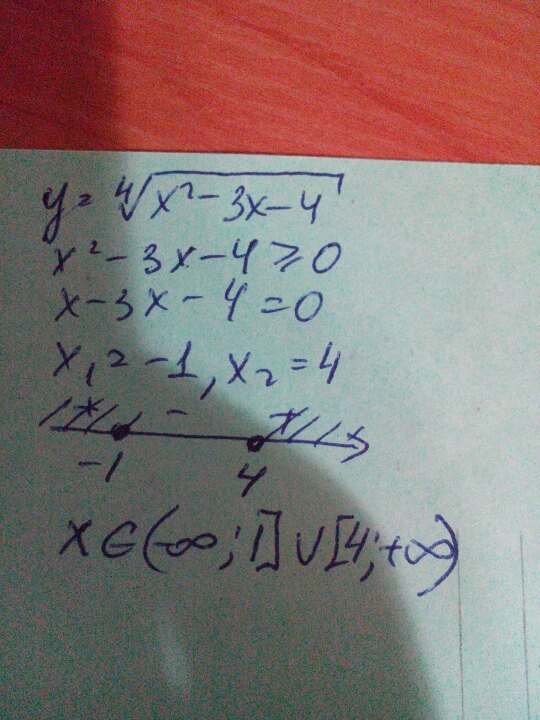 y = ∜(x² - 3x - 4)
x² - 3x - 4 ⩾ 0
x - 3x - 4 = 0
x₁ = -1, x₂ = 4
+ - + x
-1 4
x ∈ (-∞; 1] ∪ [4; +∞)